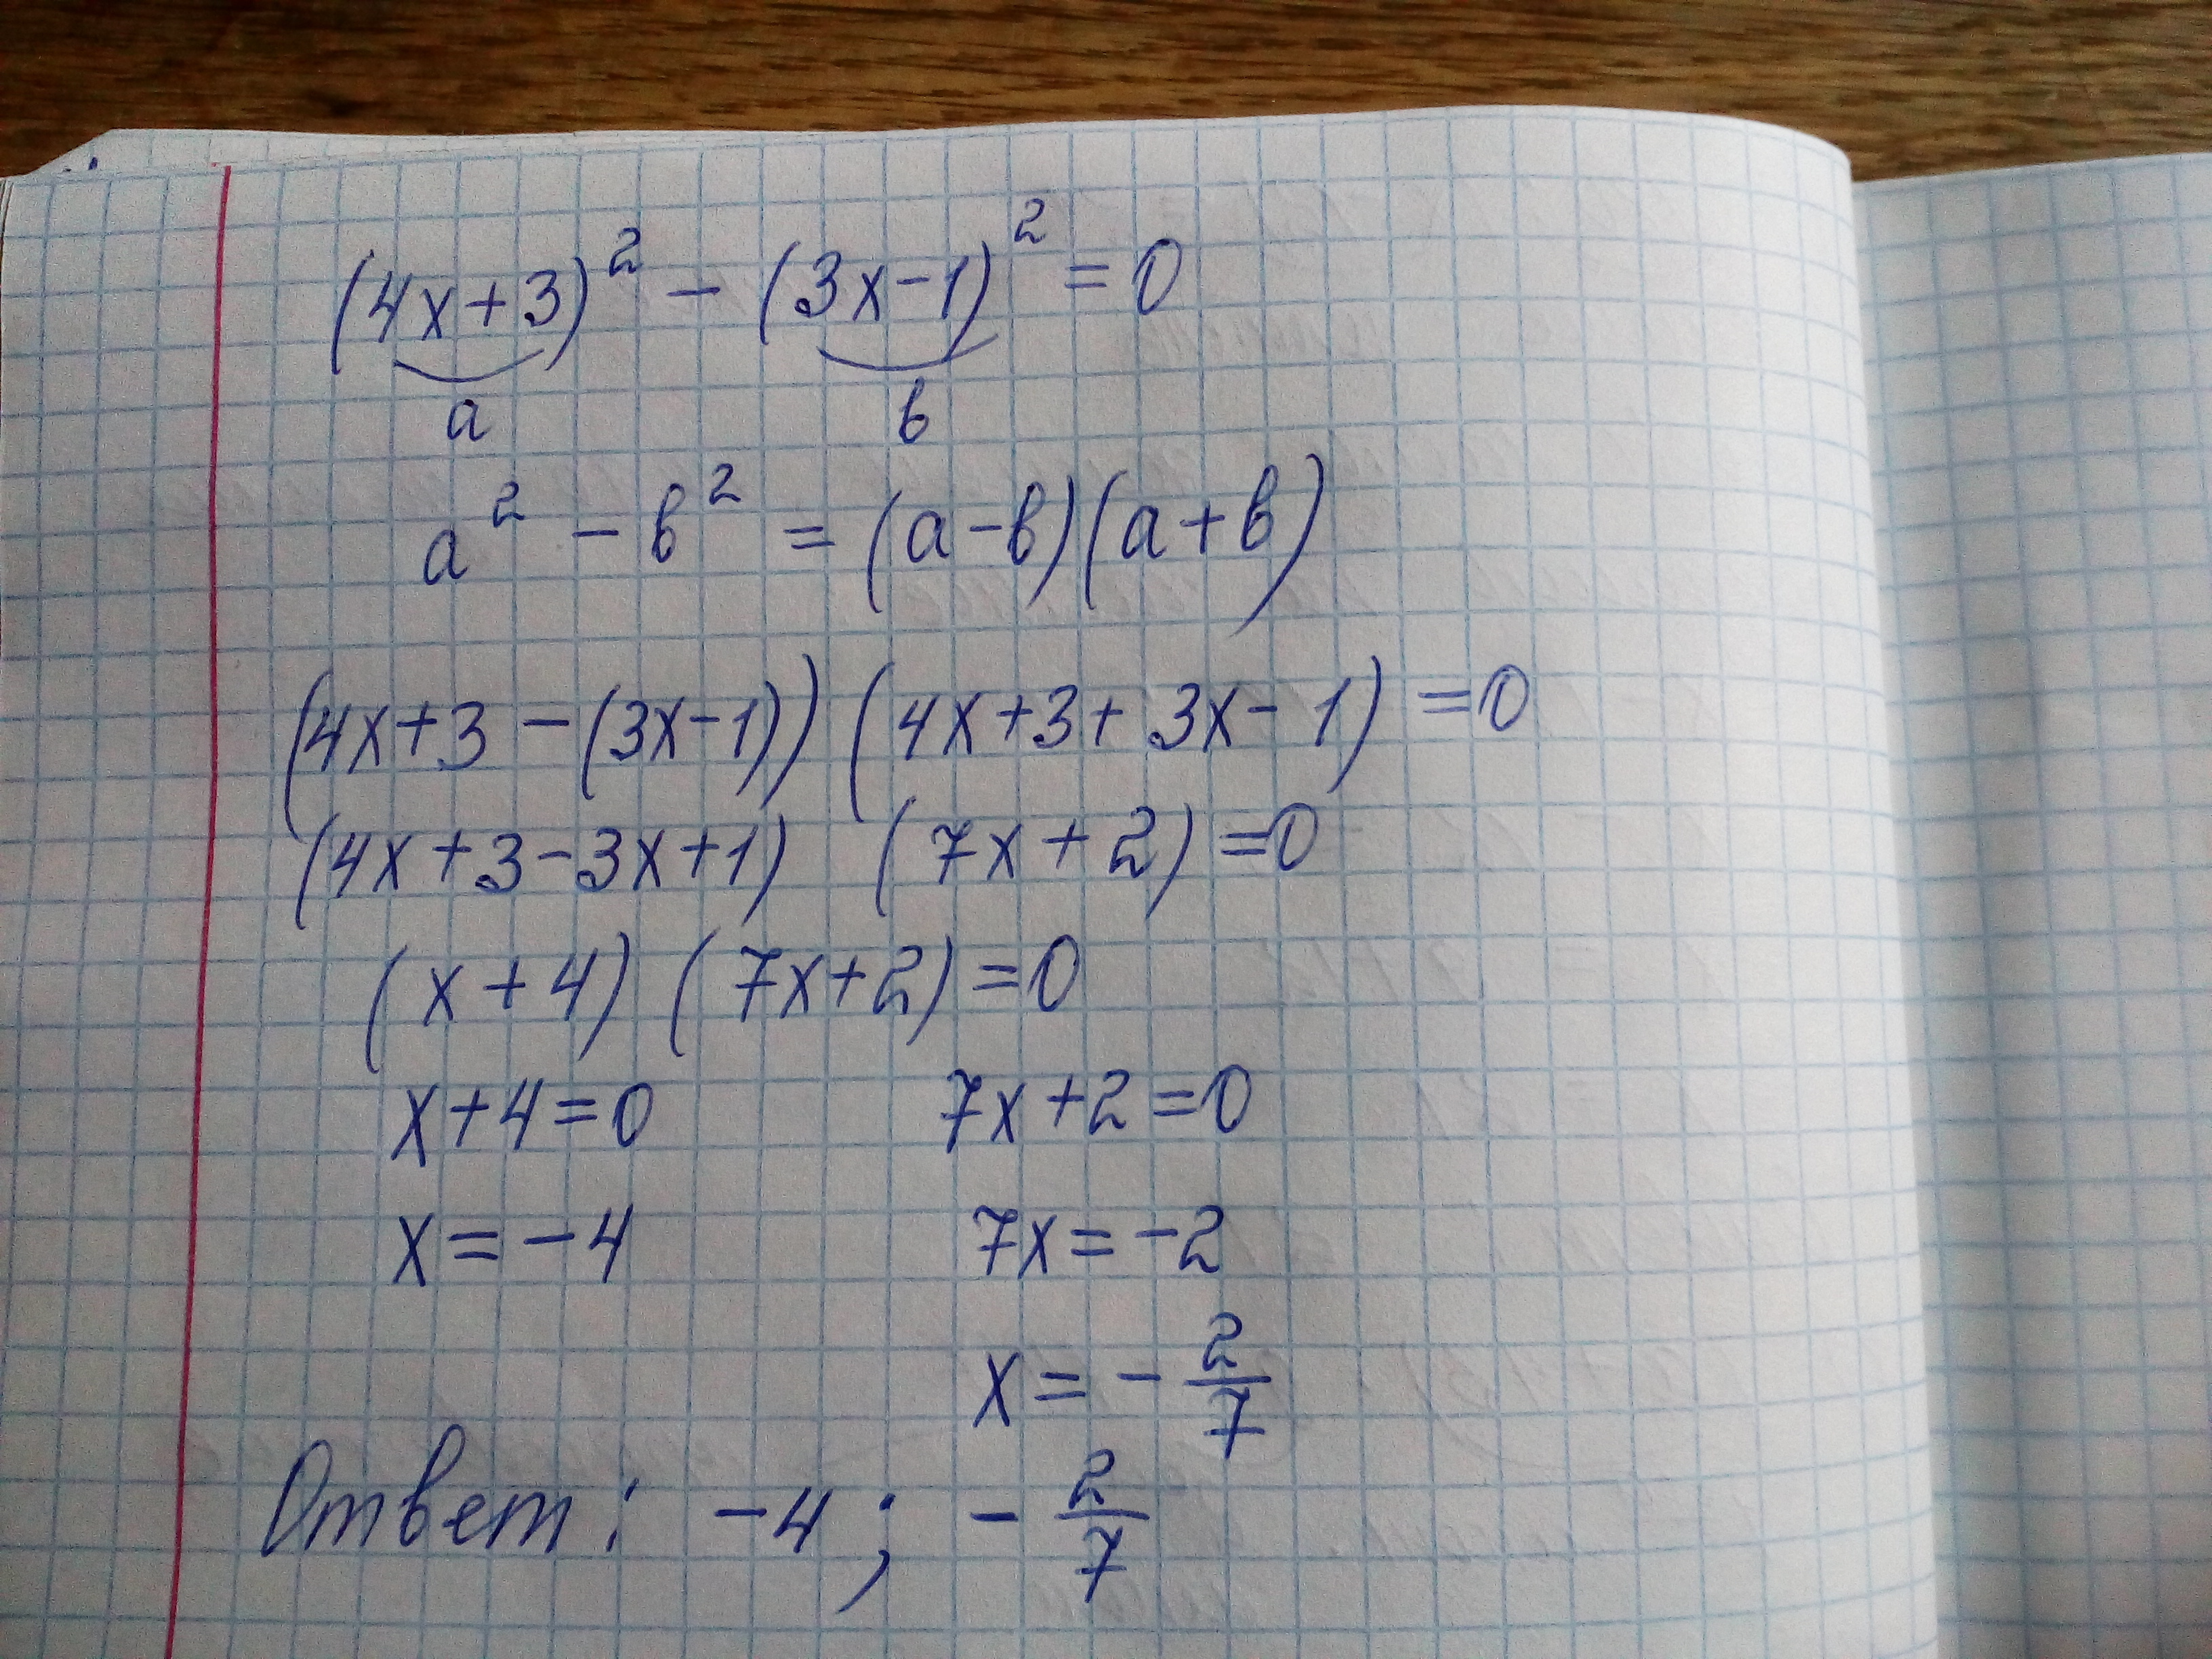 (4x+3)² − (3x−1)² = 0
a в
a² − в² = (a−в)(a+в)
(4x+3−(3x−1))(4x+3+3x−1) =0
(4x+3−3x+1) (7x+2)=0
(x+4)(7x+2)=0
x+4=0 7x+2=0
x=−4 7x=−2
x=−2/7
Ответ: −4; −2/7